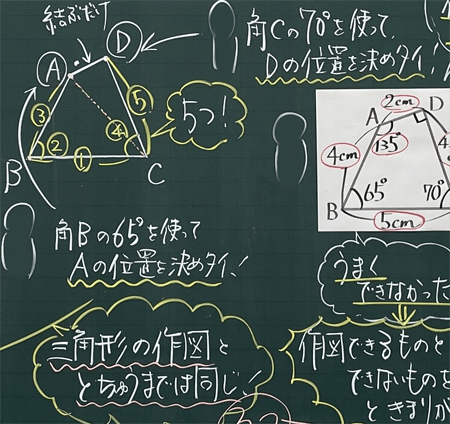 結ぶだけ
A
D
③
②
①
④
⑤
B
C
5つ!
角Cの70°を使って、
Dの位置を決めタイ!
2cm
A
D
135°
4cm
4
65°
70°
B
5cm
角Bの65°を使って
Aの位置を決めタイ!
うまく
できなかった
三角形の作図と
とちゅうまでは同じ!
作図できるものと
できないものを
ときまりが